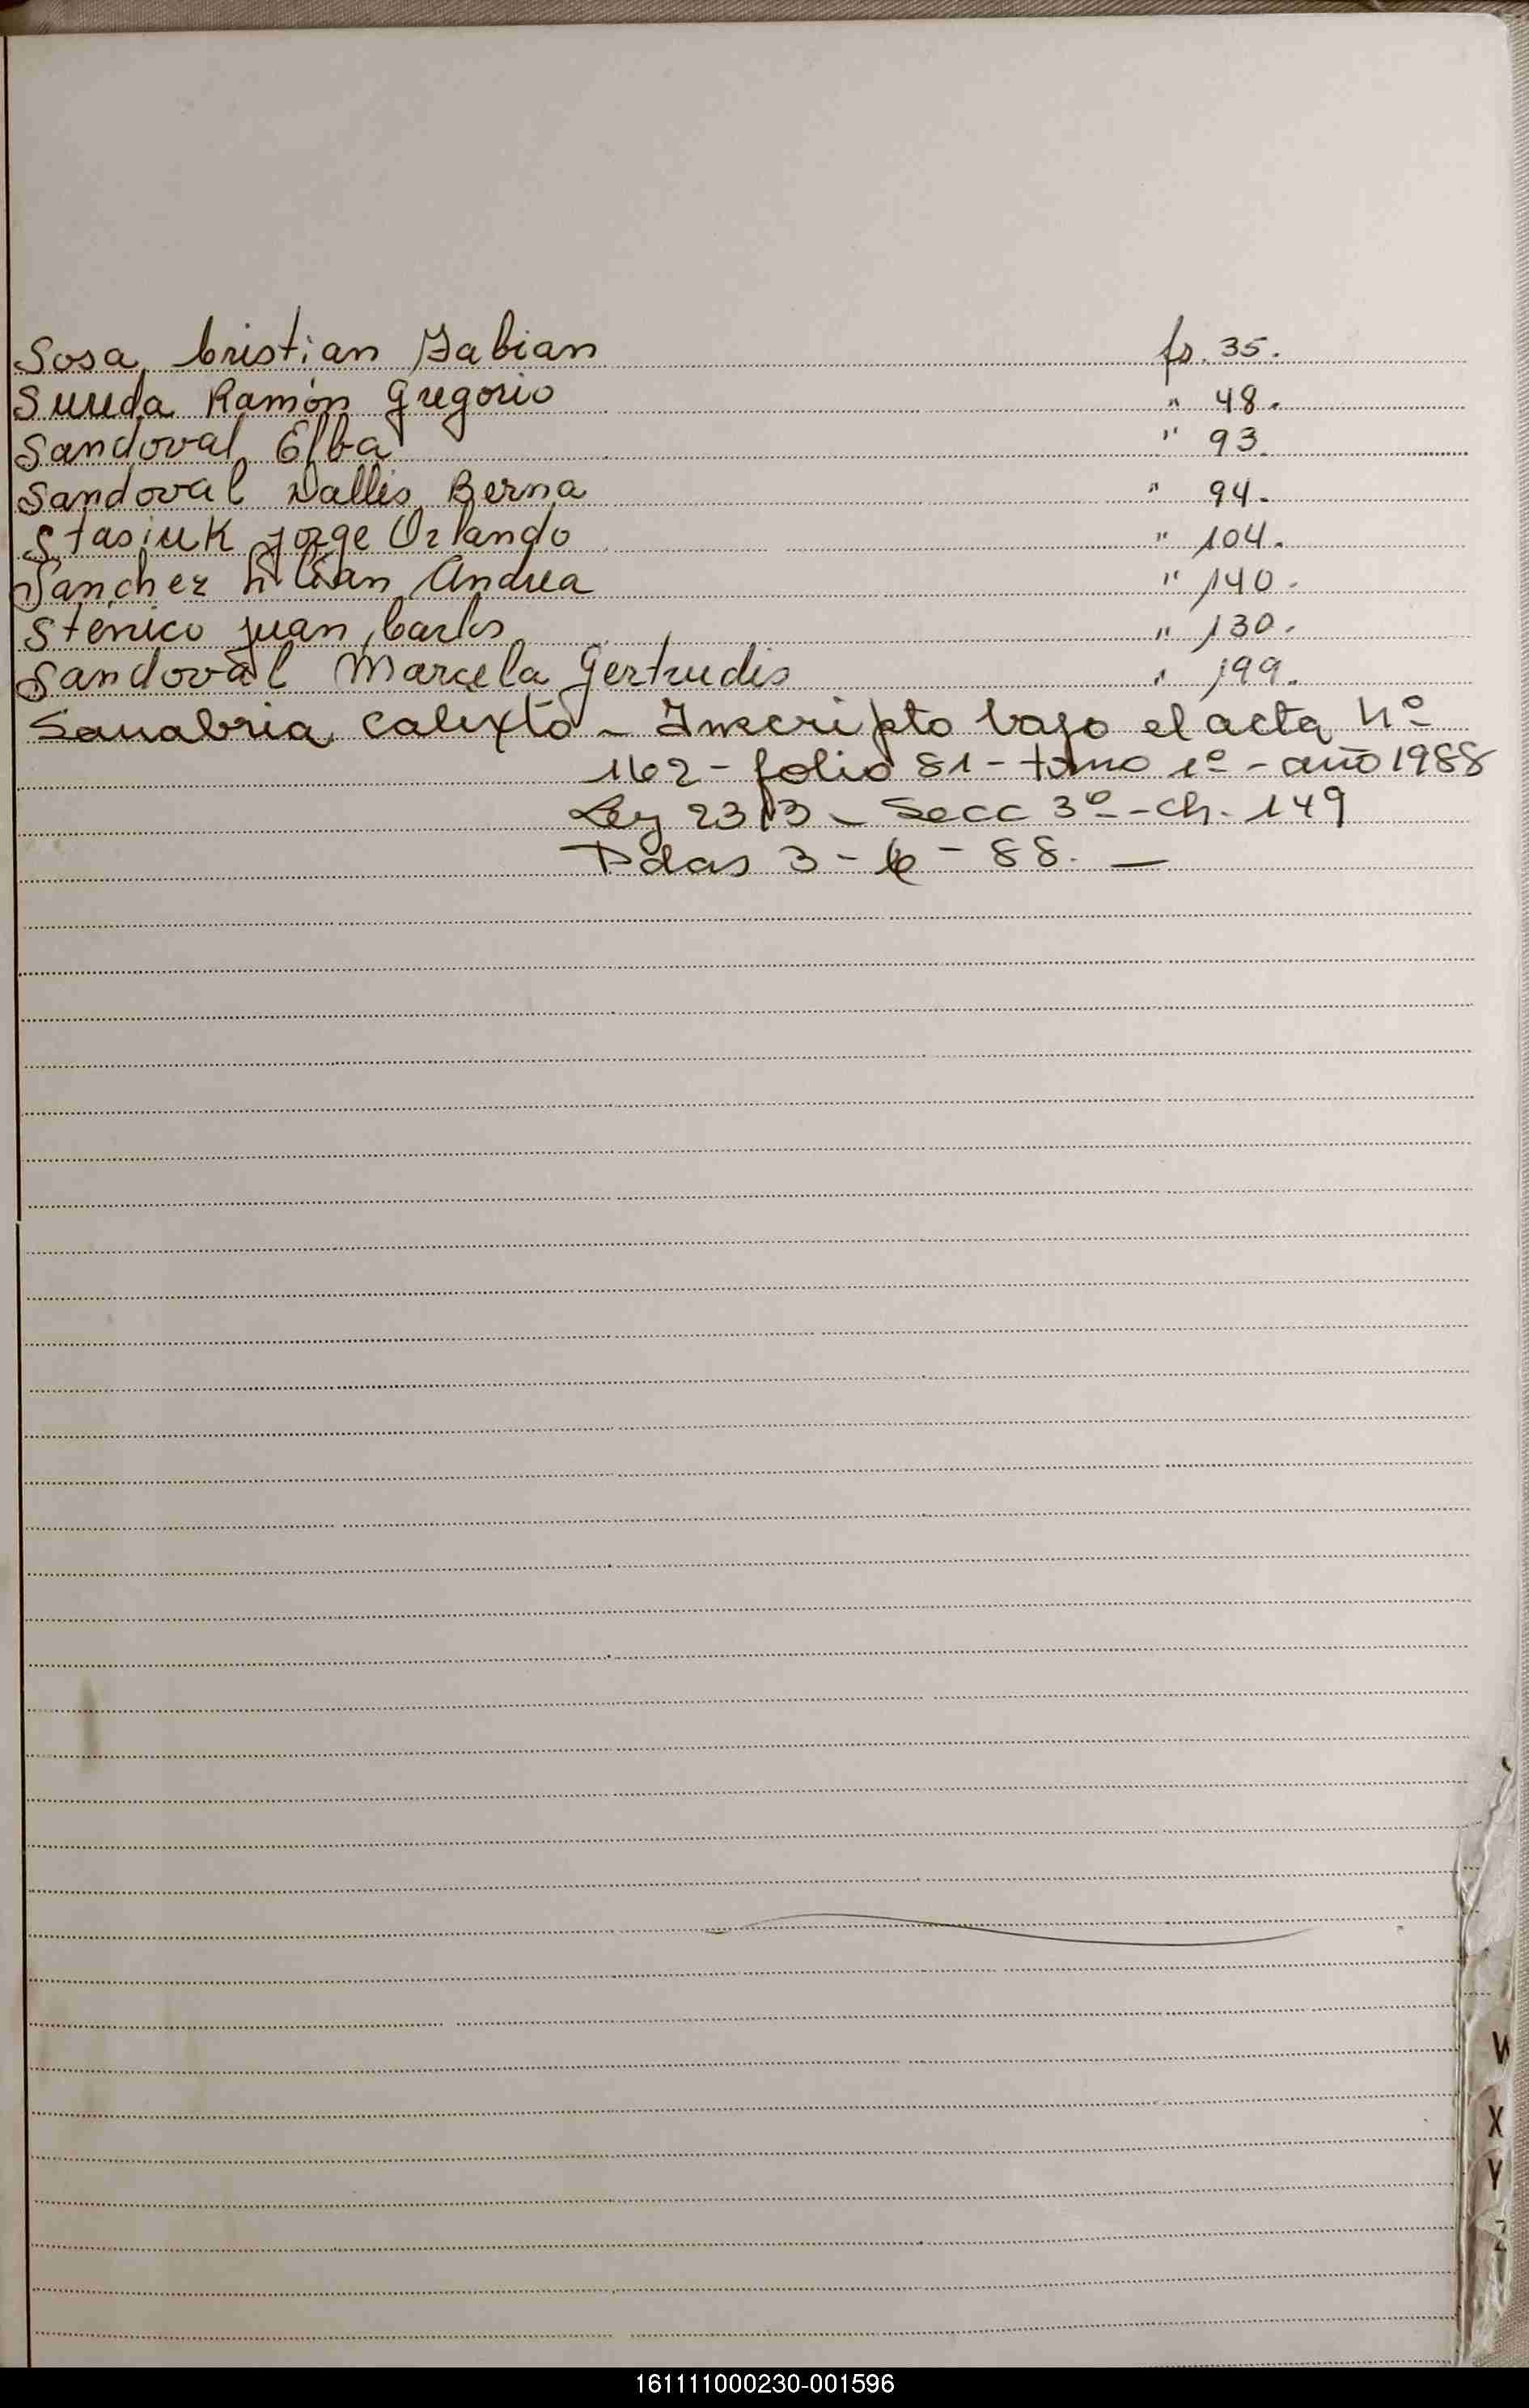 Sosa Cristian Fabian fs. 35.
Sureda Ramón Gregorio " 48.
Sandoval Elba " 93.
Sandoval Nallis Berna " 94.
Stasiuk Jorge Orlando " 104.
Sanchez Lilian Andrea " 140.
Stenico Juan Carlos " 130.
Sandoval Marcela Gertrudis " 199.
Sanabria Calixto - Inscripto bajo el acta Nº
162 - folio 81 - tomo 1º - año 1988
Ley 2313 - Secc 3º - Ch. 149
Pdas 3 - 6 - 88. —
W
X
Y
Z
161111000230-001596